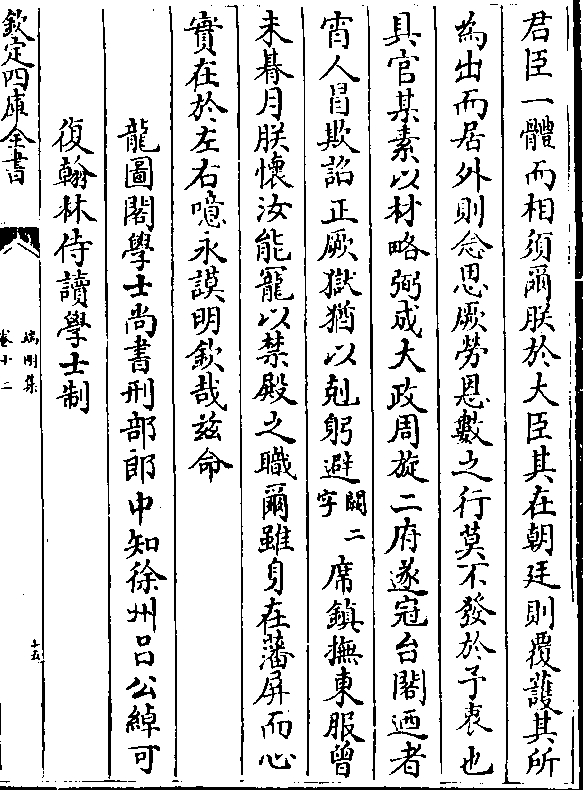 君臣一體而相須爾朕於大臣其在朝廷則覆護其所
為出而居外則念思厥勞恩數之行莫不發於予衷也
具官某素以材略弼成大政周旋二府遂冠台閣迺者
宵人冒欺詒正厥獄猶以剋躬避闕二字席鎮撫東服曾
未朞月朕懷汝能寵以禁殿之職爾雖身在藩屏而心
實在於左右噫永謨明欽哉兹命
龍圖閣學士尚書刑部郎中知徐州呂公綽可
復翰林侍讀學士制
欽定四庫全書
端明集
卷十二
十五